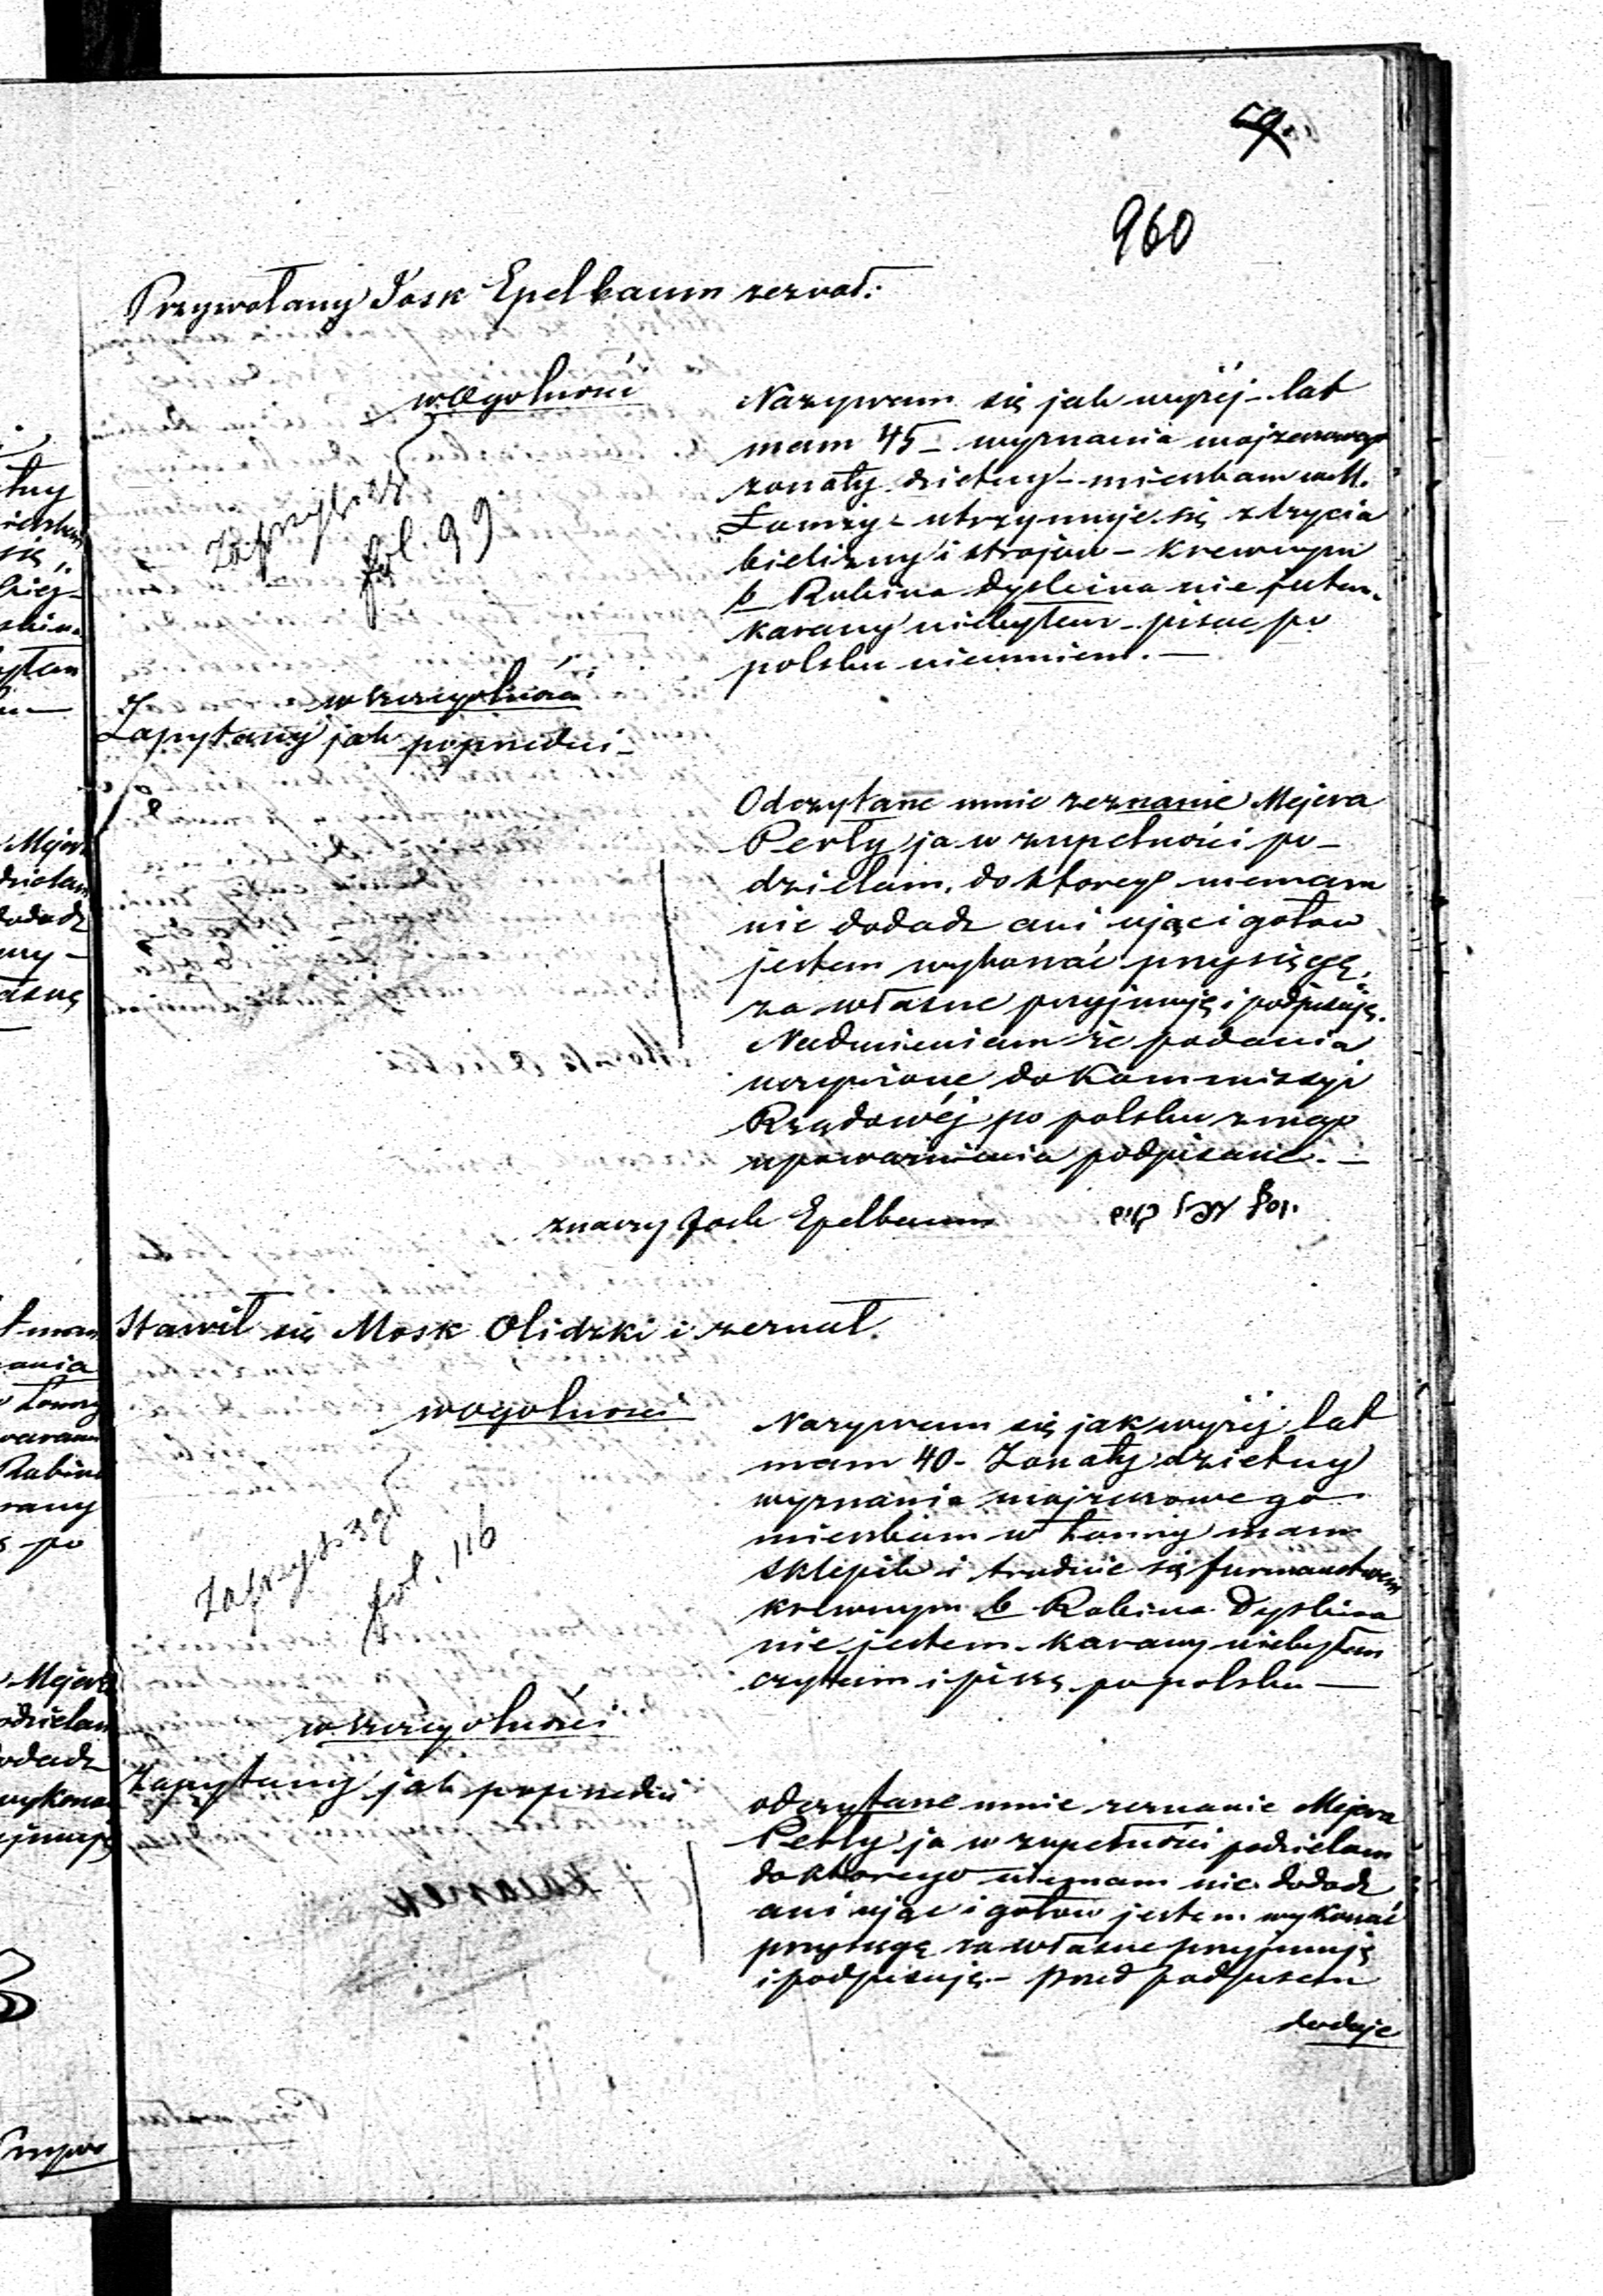 960
Przywołany Josk Epelbaum zeznał:
w ogolnosci
Nazywam się jak wyżéj – lat
mam 45 – wyznania mojzeszowego
zonaty dzietny – mieszkam w M.
Łomży – utrzymuje się z szycia
bielizny i strojow – krewnym
b Rabina Dyskina nie jestem
karany niebyłem – pisac po
polsku nieumiem. –
fol. 99
w szczegolnosci
Zapytany jak poprzedni –
Odczytane mnie zeznanie Mejera
Perły ja w zupełności po–
dzielam, do ktorego niemam
nic dodadz ani ująć i gotow
jestem wykonać przysięgę,
za własne przyjmuję i podpisuję.
Nadmieniam że podania
uczynione do Kommissyi
Rządowéj po polsku z mego
upoważnienia podpisane. –
znaczy Josk Epelbaum
Stawił się Mosk Olidzki i zeznał.
w ogolnosci
Nazywam się jak wyżéj lat
mam 40 – Zonaty dzietny
wyznania mojzeszowego
mieszkam w Łomży mam
sklepik i trudnie się furmanstwem
krewnym b Rabina Dyskina
nie jestem – karany niebyłem
czytam i piszę po polsku –
fol. 116
w szczegolności
Zapytany jak poprzedni
odczytane mnie zeznanie Mejera
Perły ja w zupełności podzielam
do ktorego niemam nic dodadz
ani ująć i gotow jestem wykonać
przysięgę za własne przyjmuję
i podpisuję – przed podpisem
dodaje